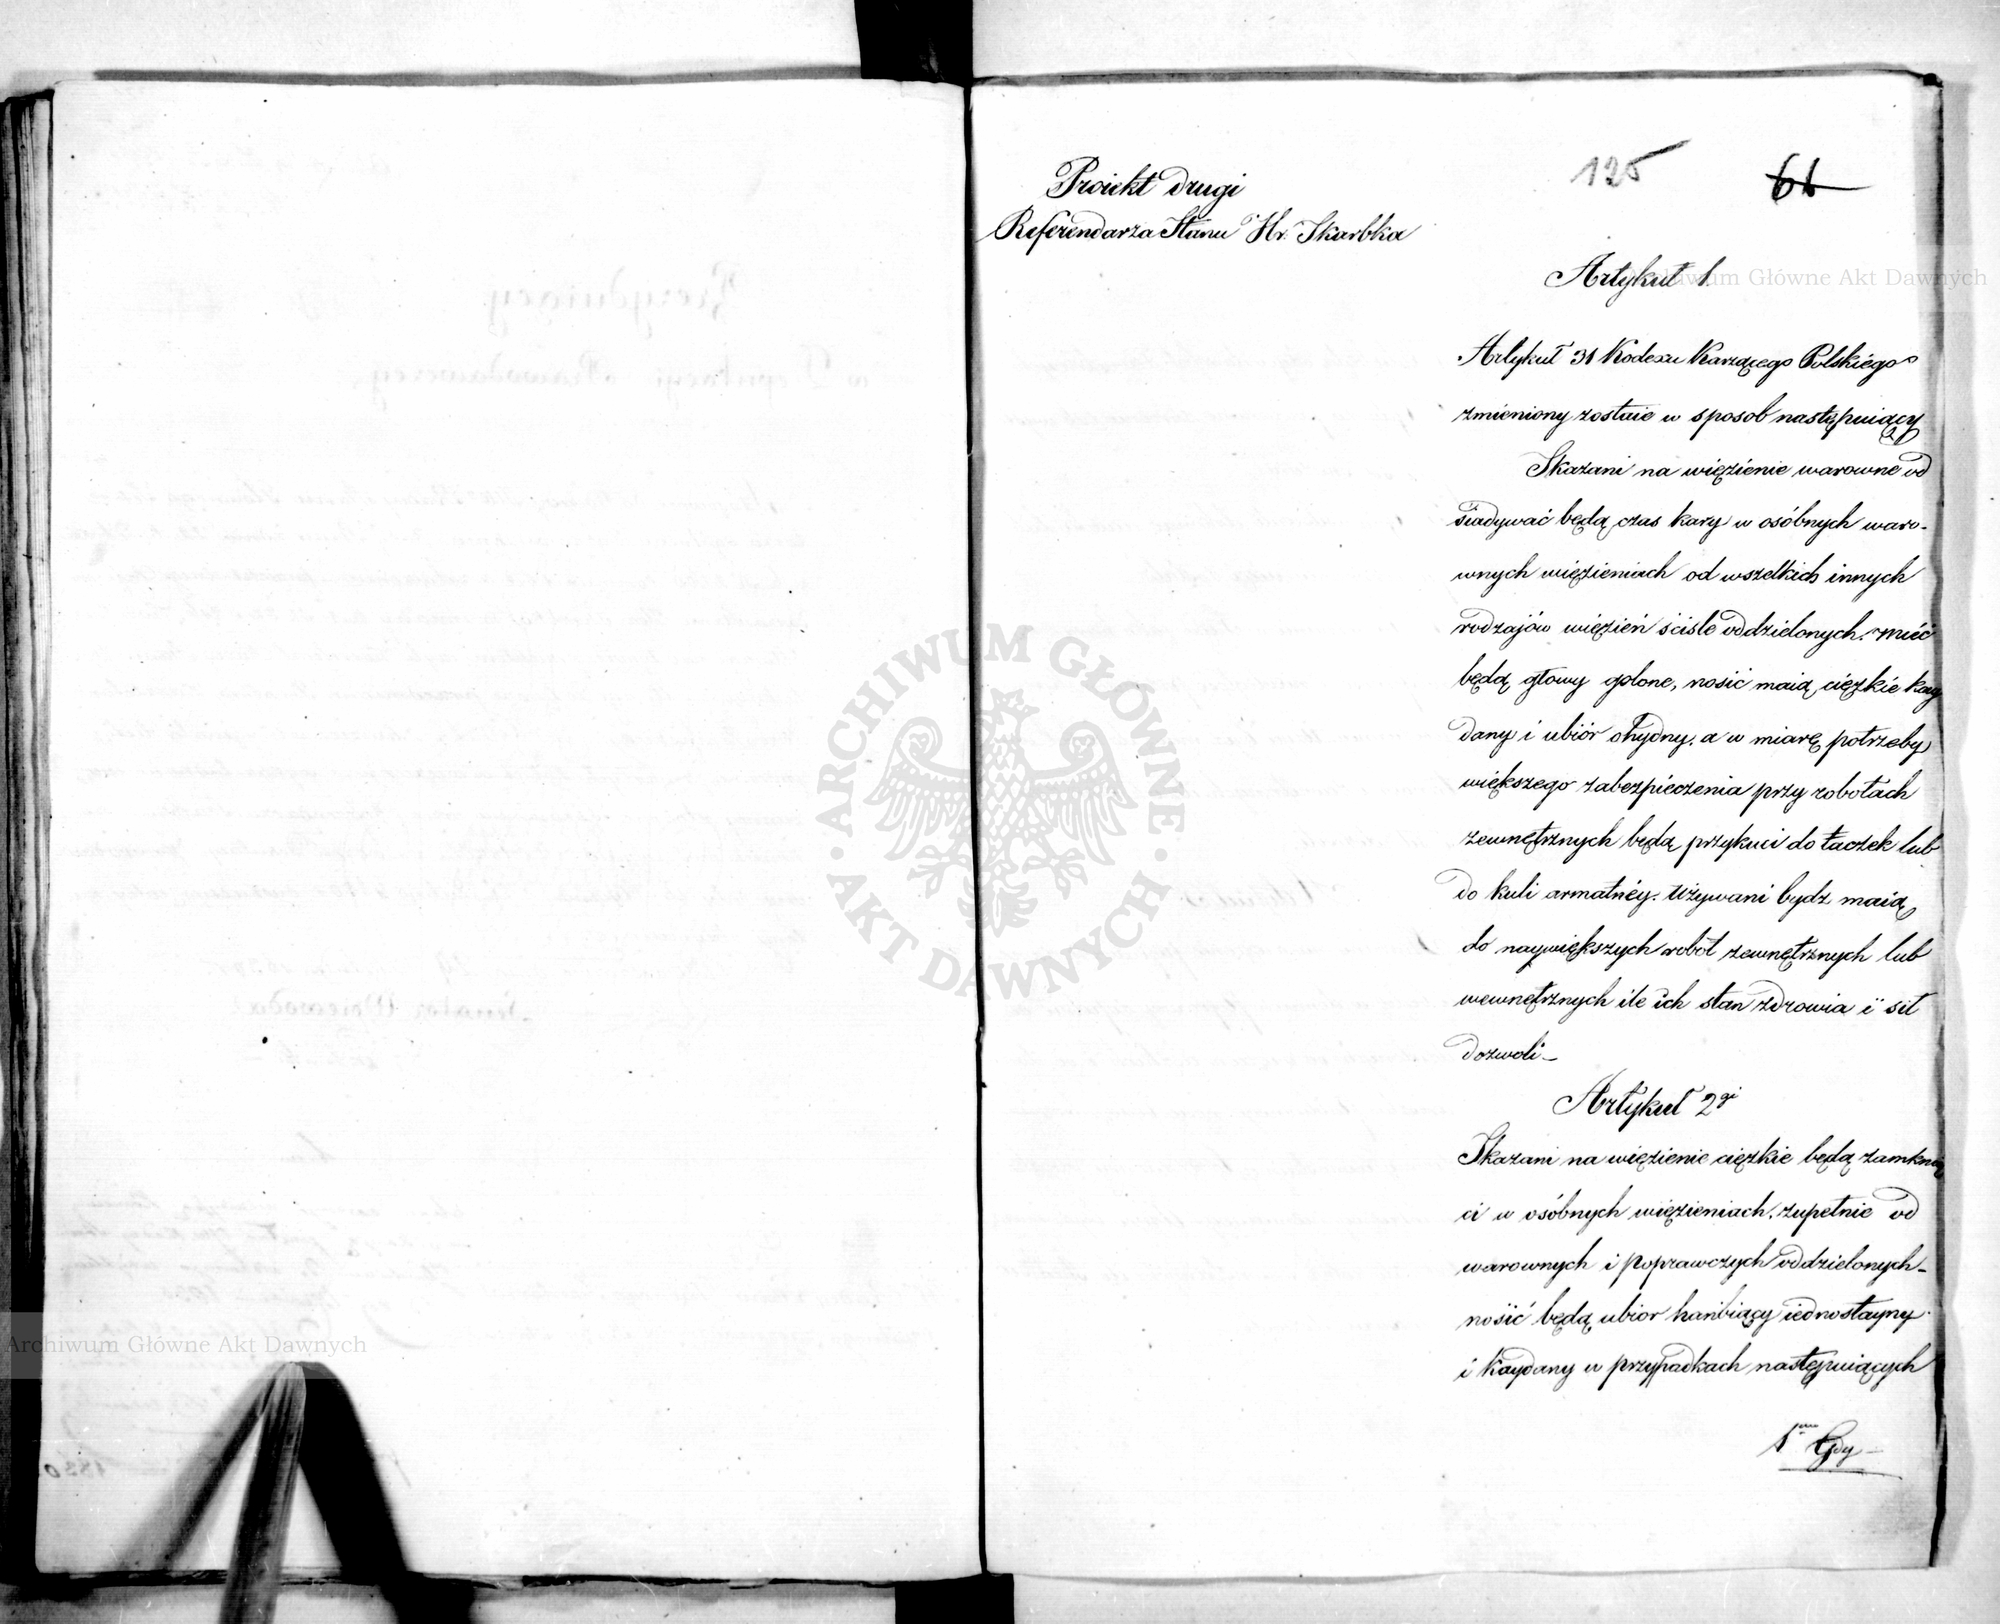 Proiekt drugi
Referendarza Stanu Hr. Skarbka
125
61
Artykuł 1.
Artykuł 31 Kodexu Karzącego Polskiégo
zmieniony zostaie w sposob następuiący
Skazani na więzienie warowne od
siadywać będą czas kary w osóbnych waro-
wnych więzieniach od wszelkich innych
rodzajów więzień ściśle oddzielonych. Mieć
będą głowy golone, nosić maią cięzkie kay
dany i ubiór ohydny, a w miarę potrzeby
większego zabezpieczenia przy robotach
zewnętrznych będą przykuci do taczek lub
do kuli armatnéy. Używani bydz maią
do naywiększych robót zewnętrznych lub
wewnętrznych ile ich stan zdrowia i sił
dozwoli_
Artykuł 2gi
Skazani na więzienie cięzkie będą zamknię
ci w osóbnych więzieniach, zupełnie od
warownych i poprawczych oddzielonych_
nosić będą ubior hańbiący iednostayny
i kaydany w przypadkach następuiących
1mo Gdy_
Archiwum Główne Akt Dawnych
Archiwum Główne Akt Dawnych
ARCHIWUM GŁÓWNE · AKT DAWNYCH ·